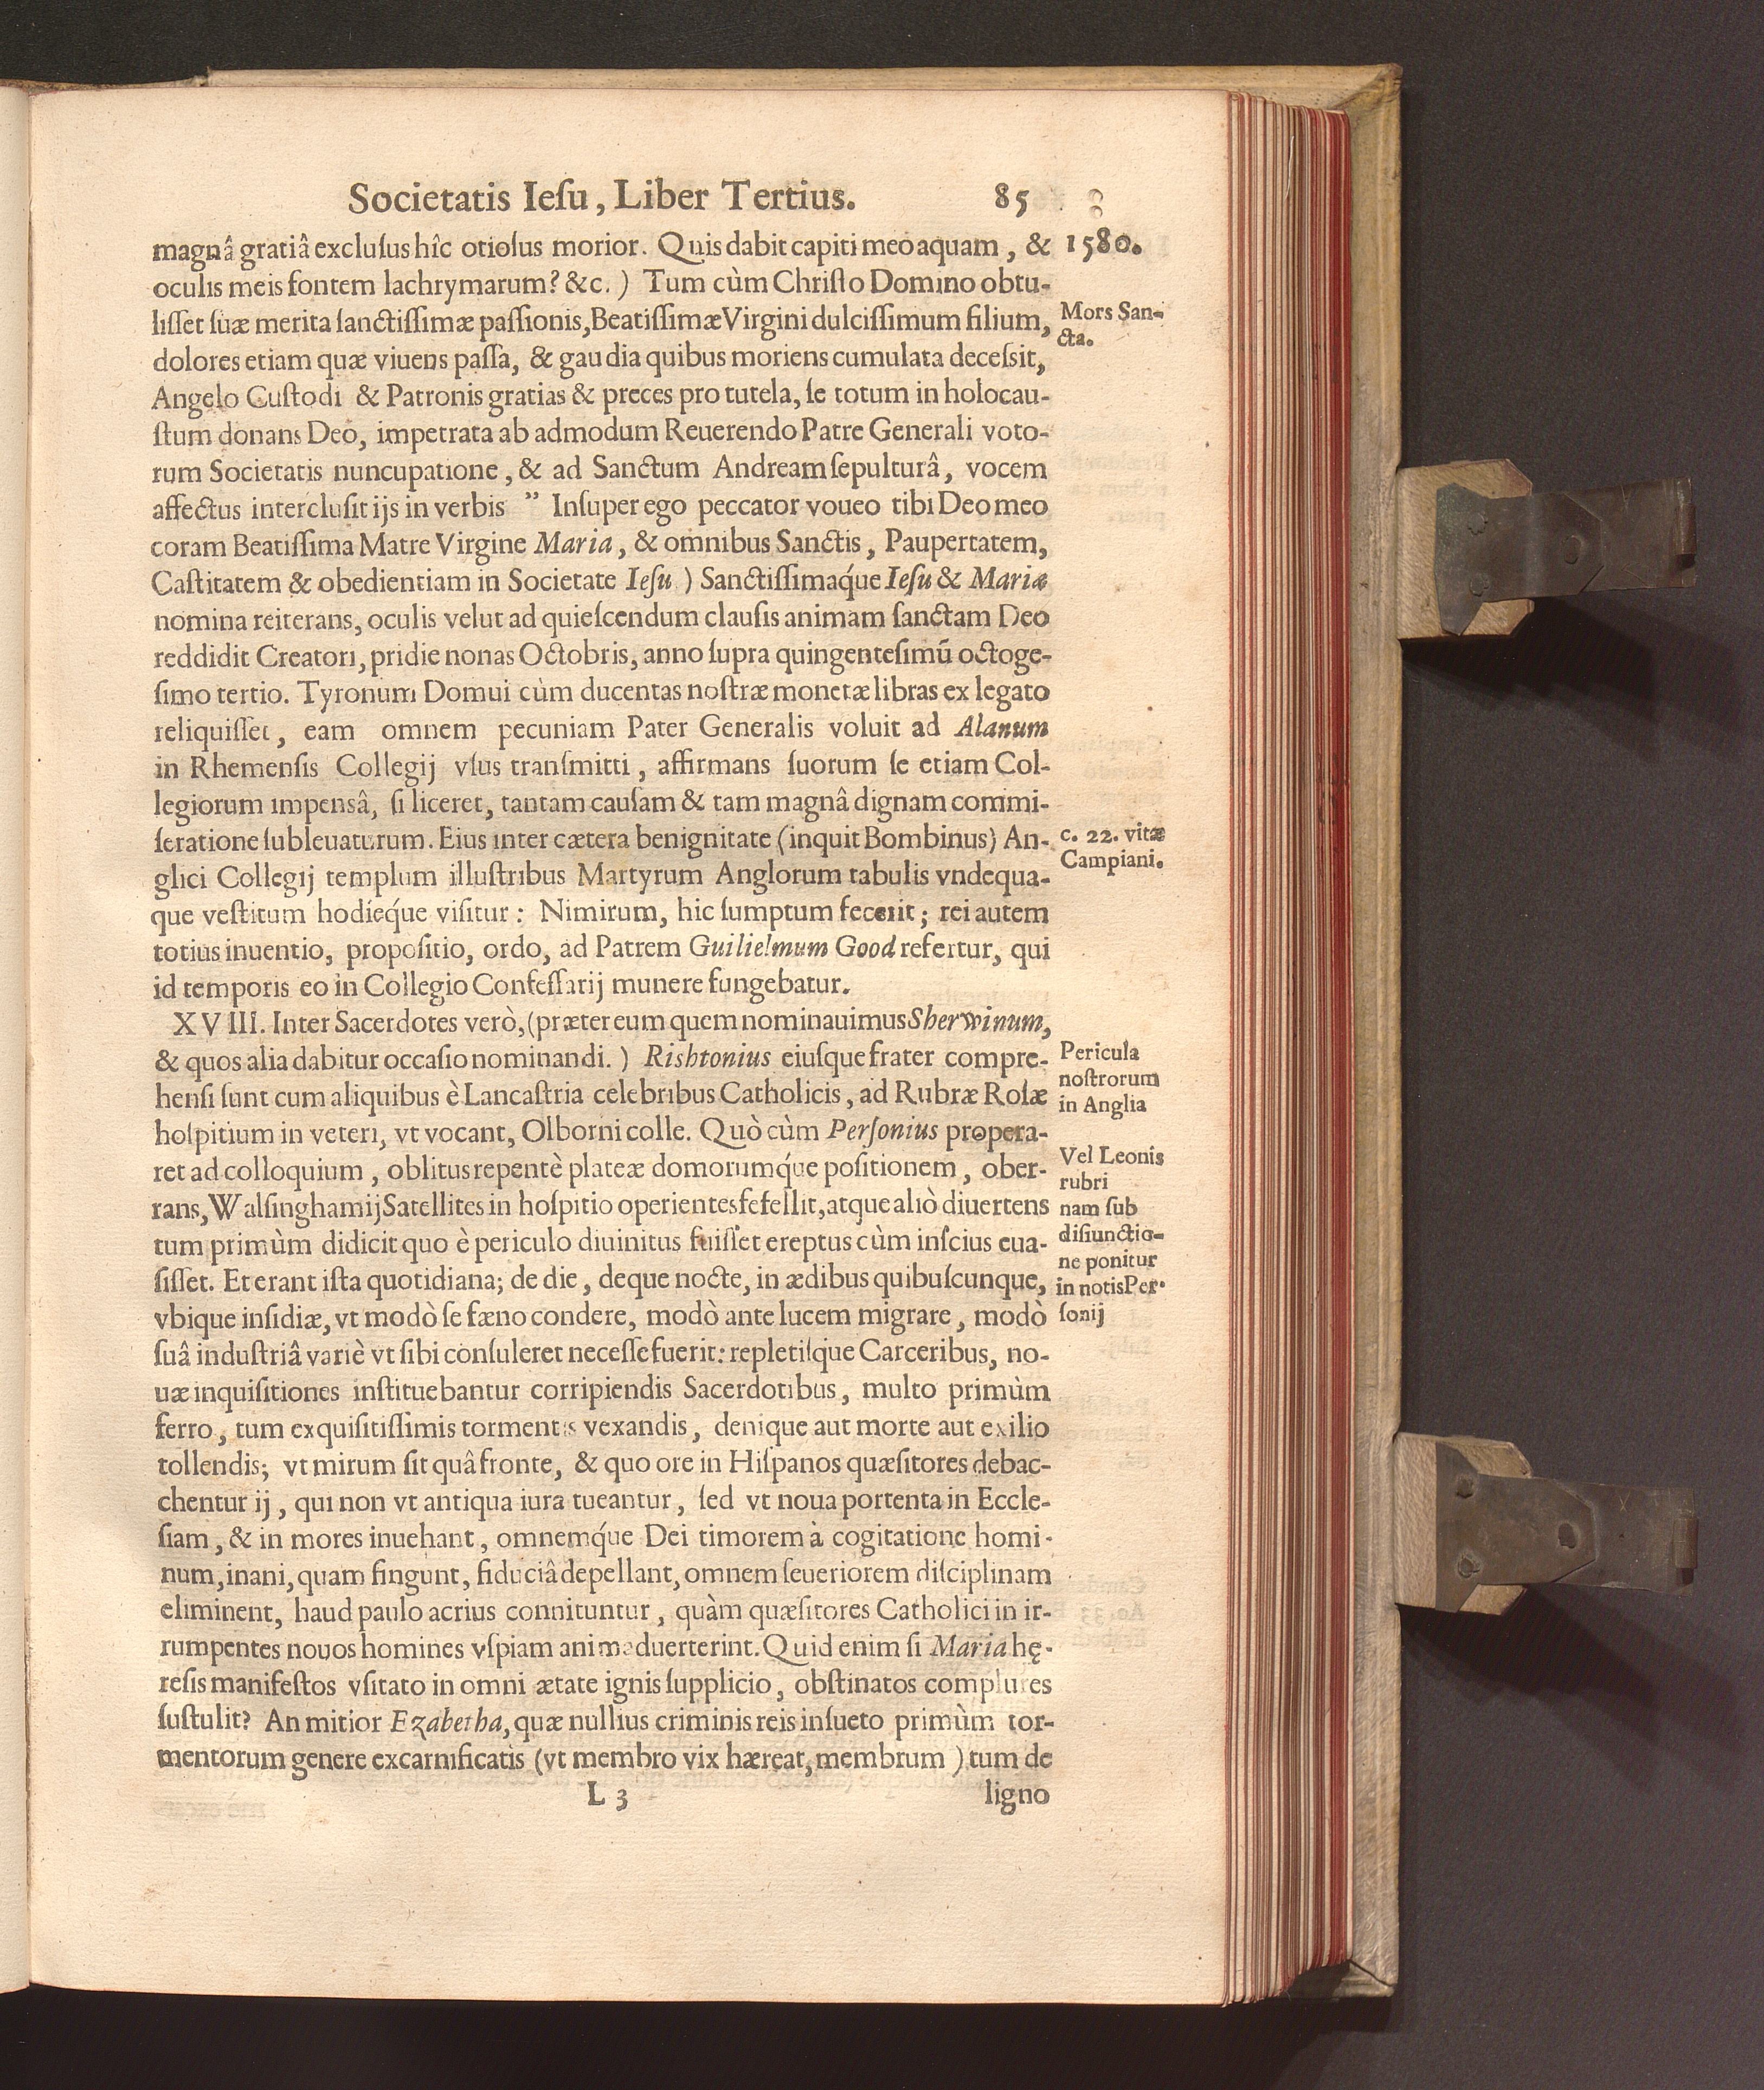 Societatis Ieſu, Liber Tertius. 85
magnâ gratiâ excluſus hîc otioſus morior. Quis dabit capiti meo aquam, &
1580.
oculis meis fontem lachrymarum? &c.) Tum cùm Chriſto Domino obtu-
liſſet ſuæ merita ſanctiſſimæ paſſionis, Beatiſſimæ Virgini dulciſſimum filium,
Mors San-
cta.
dolores etiam quæ viuens paſſa, & gaudia quibus moriens cumulata deceſsit,
Angelo Cuſtodi & Patronis gratias & preces pro tutela, ſe totum in holocau-
ſtum donans Deo, impetrata ab admodum Reuerendo Patre Generali voto-
rum Societatis nuncupatione, & ad Sanctum Andream ſepulturâ, vocem
affectus intercluſit ijs in verbis ” Inſuper ego peccator voueo tibi Deo meo
coram Beatiſſima Matre Virgine Maria, & omnibus Sanctis, Paupertatem,
Caſtitatem & obedientiam in Societate Ieſu) Sanctiſſimaq́ue Ieſu & Mariæ
nomina reiterans, oculis velut ad quieſcendum clauſis animam ſanctam Deo
reddidit Creatori, pridie nonas Octobris, anno ſupra quingenteſimū octoge-
ſimo tertio. Tyronum Domui cùm ducentas noſtræ monetæ libras ex legato
reliquiſſet, eam omnem pecuniam Pater Generalis voluit ad Alanum
in Rhemenſis Collegij vſus tranſmitti, affirmans ſuorum ſe etiam Col-
legiorum impensâ, ſi liceret, tantam cauſam & tam magnâ dignam commi-
ſeratione ſubleuaturum. Eius inter cætera benignitate (inquit Bombinus) An-
c. 22. vitæ
Campiani.
glici Collegij templum illuſtribus Martyrum Anglorum tabulis vndequa-
que veſtitum hodieq́ue viſitur: Nimirum, hic ſumptum fecerit; rei autem
totius inuentio, propoſitio, ordo, ad Patrem Guilielmum Good refertur, qui
id temporis eo in Collegio Confeſſarij munere fungebatur.
XVIII. Inter Sacerdotes verò, (præter eum quem nominauimus Sherwinum,
& quos alia dabitur occaſio nominandi.) Rishtonius eiuſque frater compre-
Pericula
noſtrorum
in Anglia
henſi ſunt cum aliquibus è Lancaſtria celebribus Catholicis, ad Rubræ Roſæ
hoſpitium in veteri, vt vocant, Olborni colle. Quò cùm Perſonius propera-
ret ad colloquium, oblitus repentè plateæ domorumq́ue poſitionem, ober-
Vel Leonis
rubri
nam ſub
diſiunctio-
ne ponitur
in notis Per-
ſonij
rans, Walſinghamij Satellites in hoſpitio operientes fefellit, atque aliò diuertens
tum primùm didicit quo è periculo diuinitus fuiſſet ereptus cùm inſcius eua-
ſiſſet. Et erant iſta quotidiana; de die, deque nocte, in ædibus quibuſcunque,
vbique inſidiæ, vt modò ſe fæno condere, modò ante lucem migrare, modò
ſuâ induſtriâ variè vt ſibi conſuleret neceſſe fuerit: repletiſque Carceribus, no-
uæ inquiſitiones inſtituebantur corripiendis Sacerdotibus, multo primùm
ferro, tum exquiſitiſſimis tormentis vexandis, denique aut morte aut exilio
tollendis; vt mirum ſit quâ fronte, & quo ore in Hiſpanos quæſitores debac-
chentur ij, qui non vt antiqua iura tueantur, ſed vt noua portenta in Eccle-
ſiam, & in mores inuehant, omnemq́ue Dei timorem à cogitatione homi-
num, inani, quam fingunt, fiduciâ depellant, omnem ſeueriorem diſciplinam
eliminent, haud paulo acrius connituntur, quàm quæſitores Catholici in ir-
rumpentes nouos homines vſpiam animaduerterint. Quid enim ſi Maria hę-
reſis manifeſtos vſitato in omni ætate ignis ſupplicio, obſtinatos complures
ſuſtulit? An mitior Ezabetha, quæ nullius criminis reis inſueto primùm tor-
mentorum genere excarnificatis (vt membro vix hæreat, membrum) tum de
L 3 ligno